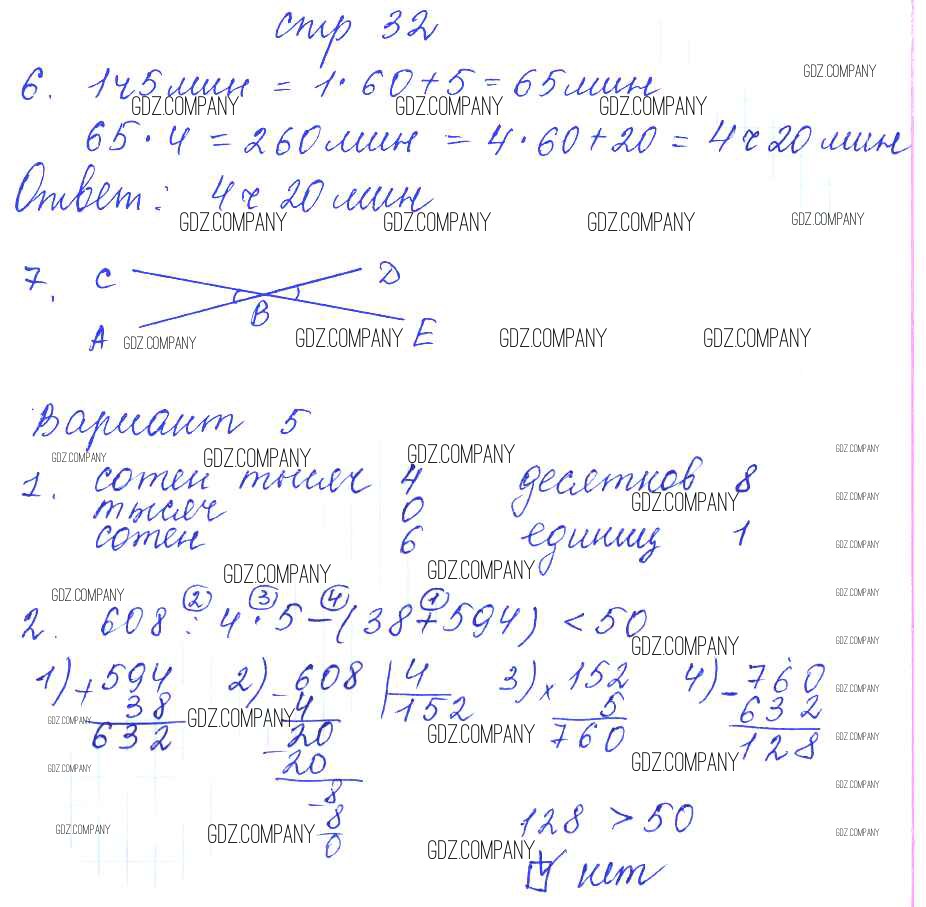 стр 32
GDZ.COMPANY
6. 1ч5мин = 1·60+5 = 65мин
GDZ.COMPANY GDZ.COMPANY GDZ.COMPANY
65·4 = 260мин = 4·60+20 = 4ч20мин
Ответ: 4ч 20мин
GDZ.COMPANY GDZ.COMPANY GDZ.COMPANY GDZ.COMPANY
7. C D
B
A E
GDZ.COMPANY GDZ.COMPANY GDZ.COMPANY GDZ.COMPANY
Вариант 5
GDZ.COMPANY GDZ.COMPANY GDZ.COMPANY GDZ.COMPANY
1. сотен тысяч 4 десятков 8
GDZ.COMPANY GDZ.COMPANY
тысяч 0
сотен 6 единиц 1
GDZ.COMPANY
GDZ.COMPANY GDZ.COMPANY
GDZ.COMPANY GDZ.COMPANY
2 3 4 1
2. 608 : 4 · 5 − (38 + 594) < 50
GDZ.COMPANY GDZ.COMPANY
1) +594 2) −608 | 4 3) ×152 4) −760
GDZ.COMPANY
38 4 152 5 632
GDZ.COMPANY GDZ.COMPANY
632 −20 760 128
GDZ.COMPANY GDZ.COMPANY
20
GDZ.COMPANY GDZ.COMPANY
−8
GDZ.COMPANY
8 128 > 50
GDZ.COMPANY GDZ.COMPANY GDZ.COMPANY
0
GDZ.COMPANY
нет